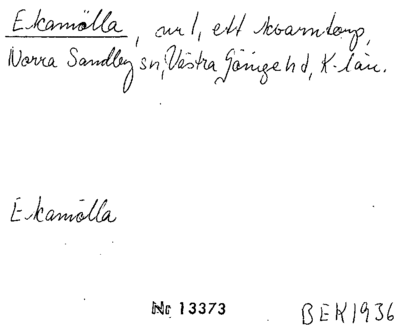 Ekamölla, nr 1, ett kvarntorp,
Norra Sandby sn, Västra Göinge hd, K-län.
Ekamölla
Nr 13373 BEK 1936